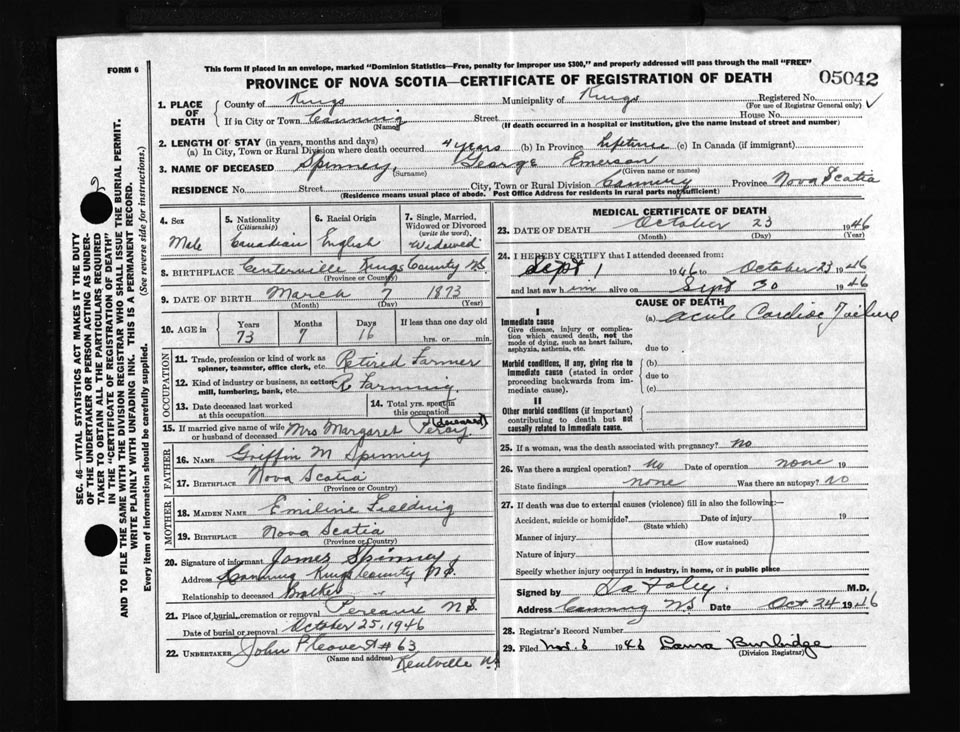 FORM 6
This form if placed in an envelope, marked "Dominion Statistics—Free, penalty for improper use $300," and properly addressed will pass through the mail "FREE"
PROVINCE OF NOVA SCOTIA—CERTIFICATE OF REGISTRATION OF DEATH 05042
1. PLACE OF DEATH County of Kings Municipality of Kings Registered No. (For use of Registrar General only) ✓
If in City or Town Canning (Name) Street House No.
(If death occurred in a hospital or institution, give the name instead of street and number)
2. LENGTH OF STAY (in years, months and days)
(a) In City, Town or Rural Division where death occurred 4 years (b) In Province Lifetime (c) In Canada (if immigrant)
3. NAME OF DECEASED Spinney, George Emerson
(Surname) (Given name or names)
RESIDENCE No. Street City, Town or Rural Division Canning Province Nova Scotia
(Residence means usual place of abode. Post Office Address for residents in rural parts not sufficient)
SEC. 46—VITAL STATISTICS ACT MAKES IT THE DUTY
OF THE UNDERTAKER OR PERSON ACTING AS UNDER-
TAKER TO OBTAIN ALL THE PARTICULARS REQUIRED
IN THE "CERTIFICATE OF REGISTRATION OF DEATH"
AND TO FILE THE SAME WITH THE DIVISION REGISTRAR WHO SHALL ISSUE THE BURIAL PERMIT.
WRITE PLAINLY WITH UNFADING INK. THIS IS A PERMANENT RECORD.
Every item of information should be carefully supplied. (See reverse side for instructions.)
4. Sex
Male
5. Nationality (Citizenship)
Canadian
6. Racial Origin
English
7. Single, Married, Widowed or Divorced (write the word)
Widowed
8. BIRTHPLACE Centerville Kings County NS
(Province or Country)
9. DATE OF BIRTH March 7 1873
(Month) (Day) (Year)
10. AGE in Years Months Days If less than one day old
73 7 16 hrs. or min.
OCCUPATION
11. Trade, profession or kind of work as spinner, teamster, office clerk, etc. Retired Farmer
12. Kind of industry or business, as cotton mill, lumbering, bank, etc. Farming
13. Date deceased last worked at this occupation
14. Total yrs. spent in this occupation
15. If married give name of wife or husband of deceased Mrs Margaret Percy (deceased)
FATHER
16. NAME Griffin M Spinney
17. BIRTHPLACE Nova Scotia
(Province or Country)
MOTHER
18. MAIDEN NAME Emiline Fielding
19. BIRTHPLACE Nova Scotia
(Province or Country)
20. Signature of informant James Spinney
Address Canning Kings County NS.
Relationship to deceased Brother
21. Place of burial, cremation or removal Pereaux NS.
Date of burial or removal October 25, 1946
22. UNDERTAKER John P Cleaver # 63
(Name and address) Kentville NS
MEDICAL CERTIFICATE OF DEATH
23. DATE OF DEATH October 23 1946
(Month) (Day) (Year)
24. I HEREBY CERTIFY that I attended deceased from:
Sept 1 1946 to October 23 1946
and last saw him alive on Sept 30 1946
CAUSE OF DEATH
I
Immediate cause (a) Acute Cardiac Failure
Give disease, injury or complica-
tion which caused death, not the
mode of dying, such as heart failure,
asphyxia, asthenia, etc. due to
Morbid conditions, if any, giving rise to (b)
immediate cause (stated in order due to
proceeding backwards from im-
mediate cause). (c)
II
Other morbid conditions (if important)
contributing to death but not
causally related to immediate cause.
25. If a woman, was the death associated with pregnancy? No
26. Was there a surgical operation? No Date of operation none 19
State findings none Was there an autopsy? No
27. If death was due to external causes (violence) fill in also the following:—
Accident, suicide or homicide? Date of injury 19
(State which)
Manner of injury
(How sustained)
Nature of injury
Specify whether injury occurred in industry, in home, or in public place
Signed by Foley M.D.
Address Canning NS Date Oct 24 1946
28. Registrar's Record Number
29. Filed Nov. 6 1946 Laura Burbidge
(Division Registrar)